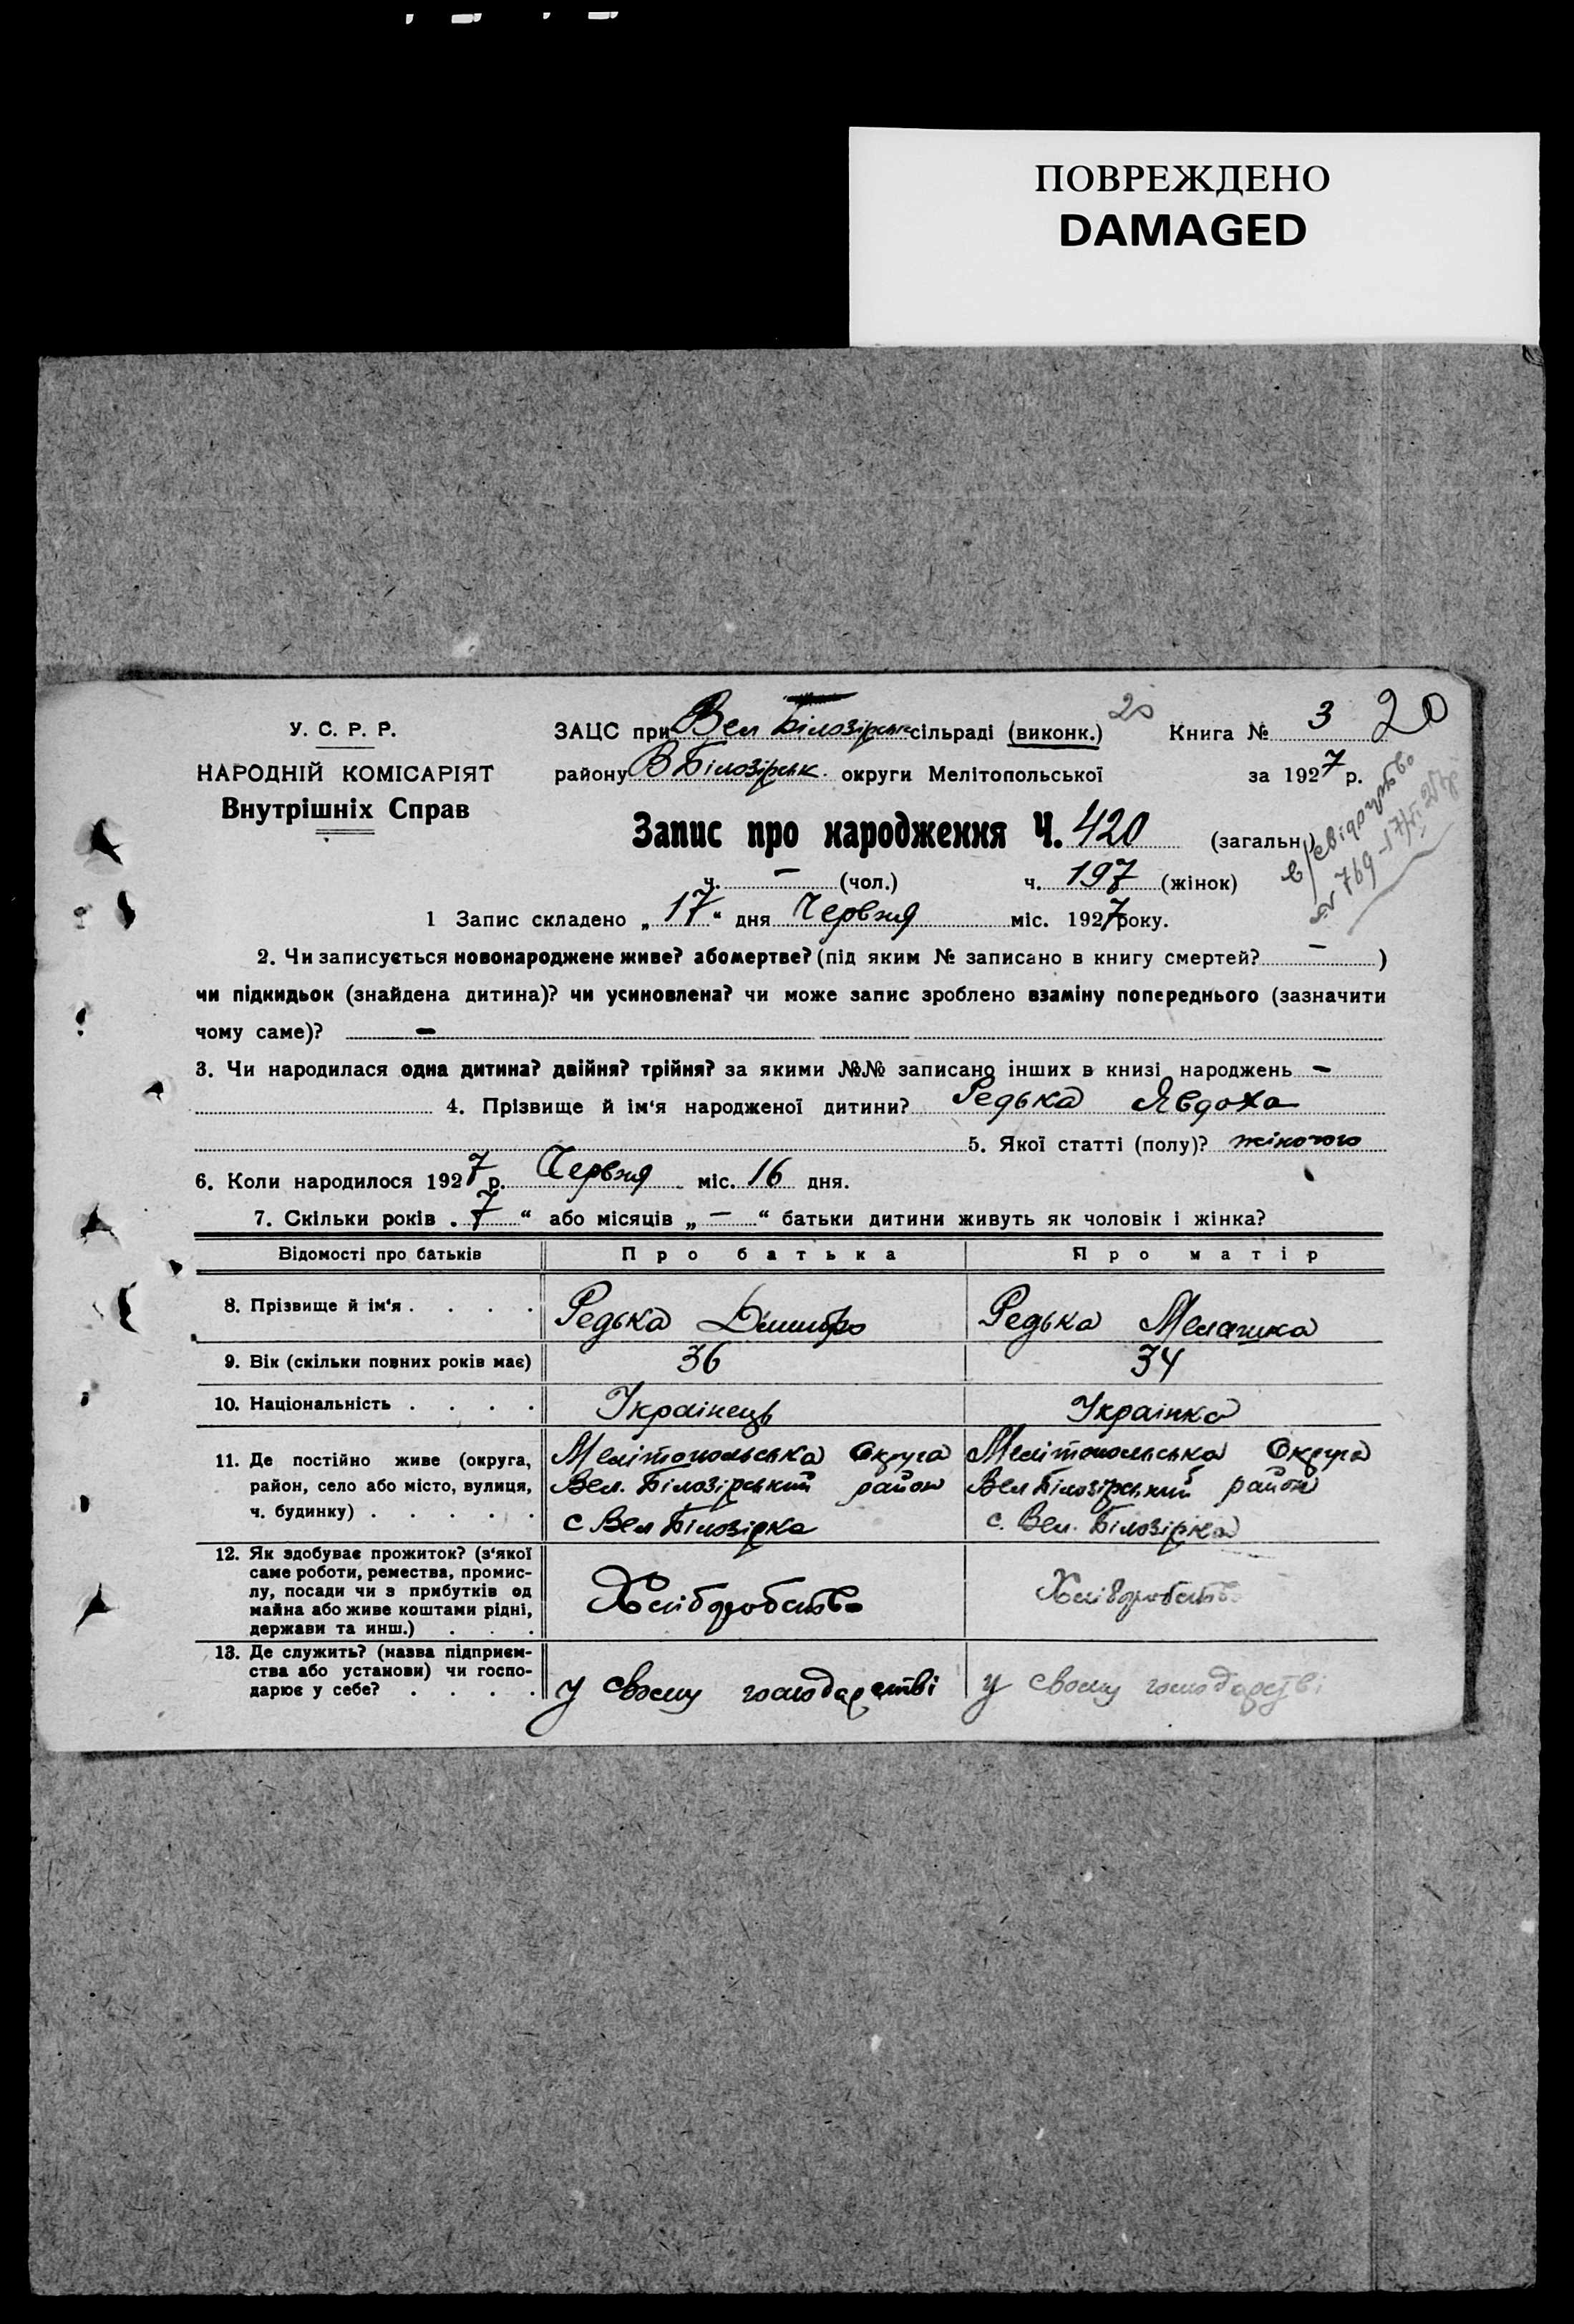 ПОВРЕЖДЕНО
DAMAGED
У. С. Р. Р.
НАРОДНІЙ КОМІСАРІЯТ
Внутрішніх Справ
20
ЗАЦС при Вел Білозірськ сільраді (виконк.) Книга № 3 20
району В Білозірськ. округи Мелітопольської за 1927 р.
Запис про народження Ч. 420 (загальн.)
ч. — (чол.) ч. 197 (жінок)
в/свідоцтво
№ 769 - 17/VI
1 Запис складено „ 17 “ дня Червня міс. 1927 року.
2. Чи записується новонароджене живе? або мертве? (під яким № записано в книгу смертей? — )
чи підкидьок (знайдена дитина)? чи усиновлена? чи може запис зроблено взаміну попереднього (зазначити
чому саме)? —
3. Чи народилася одна дитина? двійня? трійня? за якими №№ записано інших в книзі народжень —
4. Прізвище й ім‘я народженої дитини? Редька Явдоха
5. Якої статті (полу)? жіночого
6. Коли народилося 1927 р. Червня міс. 16 дня.
7. Скільки років „ 7 “ або місяців „ — “ батьки дитини живуть як чоловік і жінка?
Відомості про батьків Про батька Про матір
8. Прізвище й ім‘я . . . . Редька Дмитро Редька Мелашка
9. Вік (скільки повних років має) 36 34
10. Національність . . . . Українець Українка
11. Де постійно живе (округа, Мелітопольська Округа Мелітопольська Округа
район, село або місто, вулиця, Вел. Білозірський район Вел Білозірський район
ч. будинку) . . . . . с Вел Білозірка с. Вел. Білозірка
12. Як здобуває прожиток? (з‘якої
саме роботи, ремества, промис-
лу, посади чи з прибутків од Хліборобство Хліборобство
майна або живе коштами рідні,
держави та инш.) . . .
13. Де служить? (назва підприєм-
ства або установи) чи госпо-
дарює у себе? . . . . у своєму господарстві у своєму господарстві